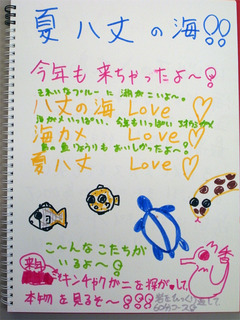 夏 八丈の海!!
今年も来ちゃったよ~!
きれいなブルーに 潮がこいよ~。
八丈の海 Love ♡
海ガメいっぱい、今年もいっぱい
海カメ Love ♡
島の魚 りょうりも おいしかったよ~。
夏八丈 Love ♡
こ~んなこたちが
いるよ~!
来年は
キンチャクガニを探がして、
本物を見るぞ~!!!
香
60分コース